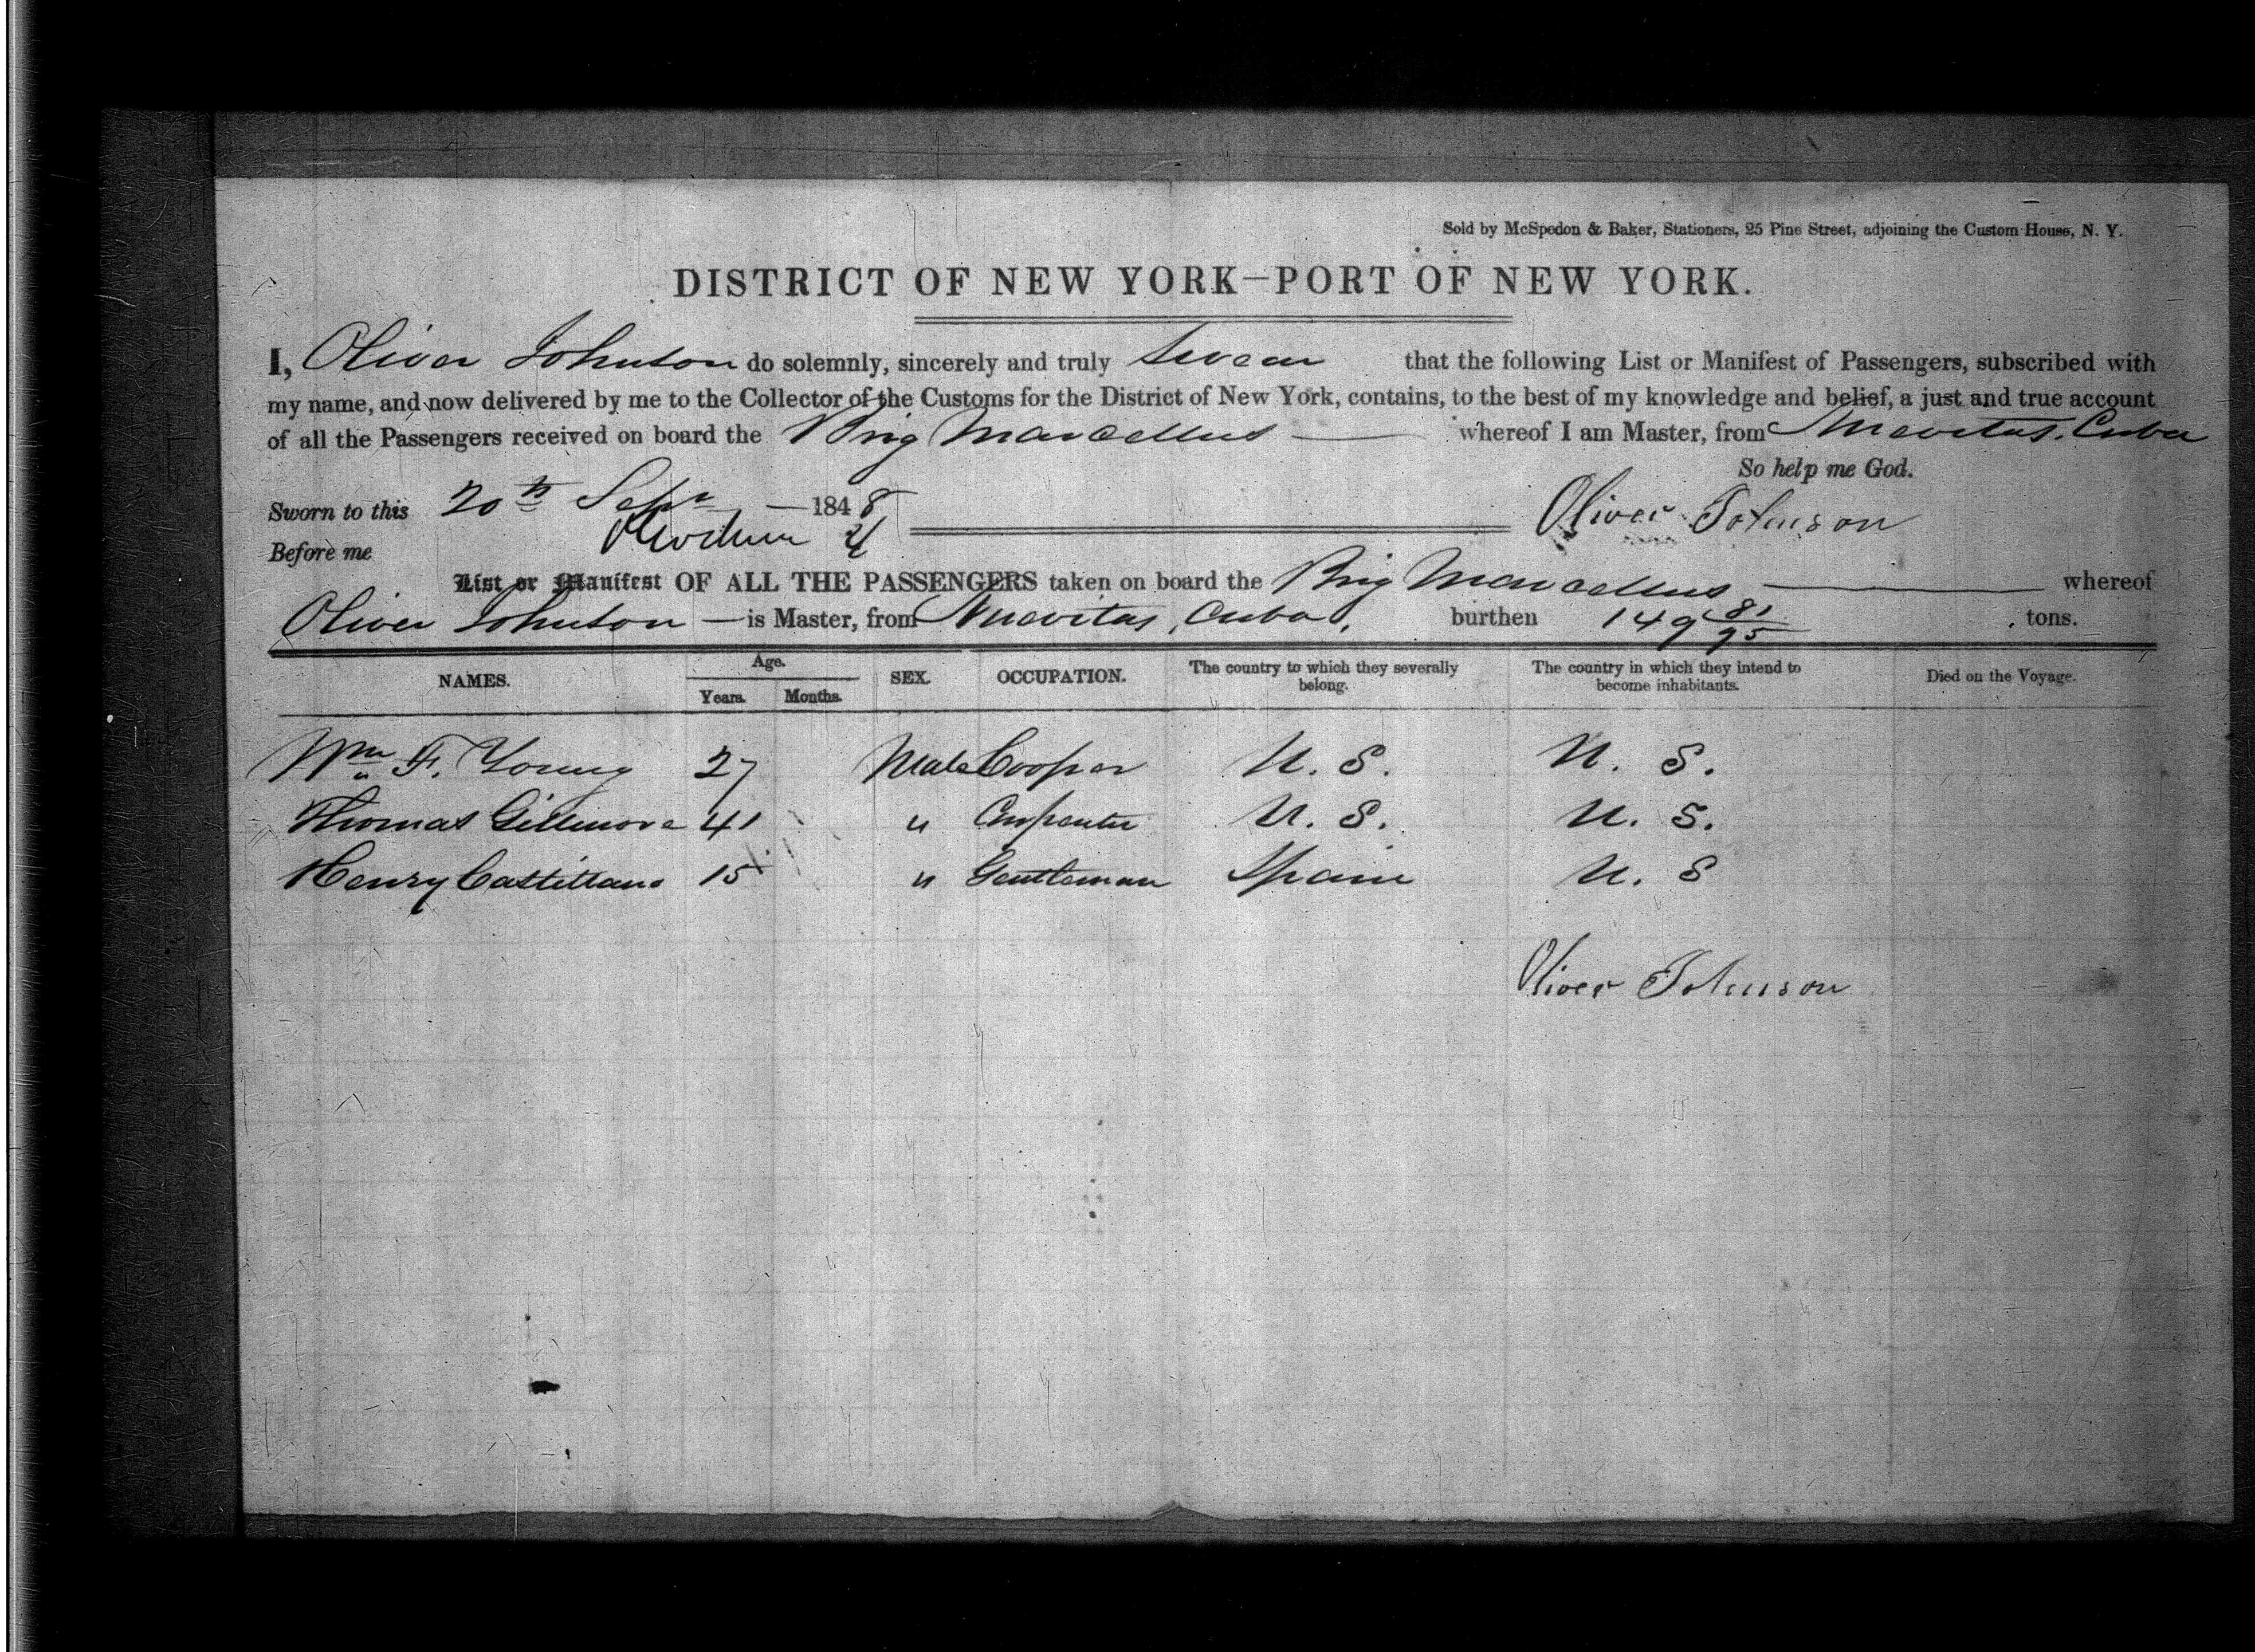 Sold by McSpedon & Baker, Stationers, 25 Pine Street, adjoining the Custom House, N. Y.
DISTRICT OF NEW YORK—PORT OF NEW YORK.
I, Oliver Johnson do solemnly, sincerely and truly swear that the following List or Manifest of Passengers, subscribed with
my name, and now delivered by me to the Collector of the Customs for the District of New York, contains, to the best of my knowledge and belief, a just and true account
of all the Passengers received on board the Brig Marcellus — whereof I am Master, from Nuevitas, Cuba
So help me God.
Sworn to this 20th Sepr — 1848 Oliver Johnson
Before me
List or Manifest OF ALL THE PASSENGERS taken on board the Brig Marcellus — whereof
Oliver Johnson — is Master, from Nuevitas, Cuba, burthen 149 81/95 tons.
NAMES. Age. Years. Months. SEX. OCCUPATION. The country to which they severally belong. The country in which they intend to become inhabitants. Died on the Voyage.
Wm F. Young 27 Male Cooper U. S. U. S.
Thomas Gillmore 41 " Carpenter U. S. U. S.
Henry Castillano 15 " Gentleman Spain U. S
Oliver Johnson